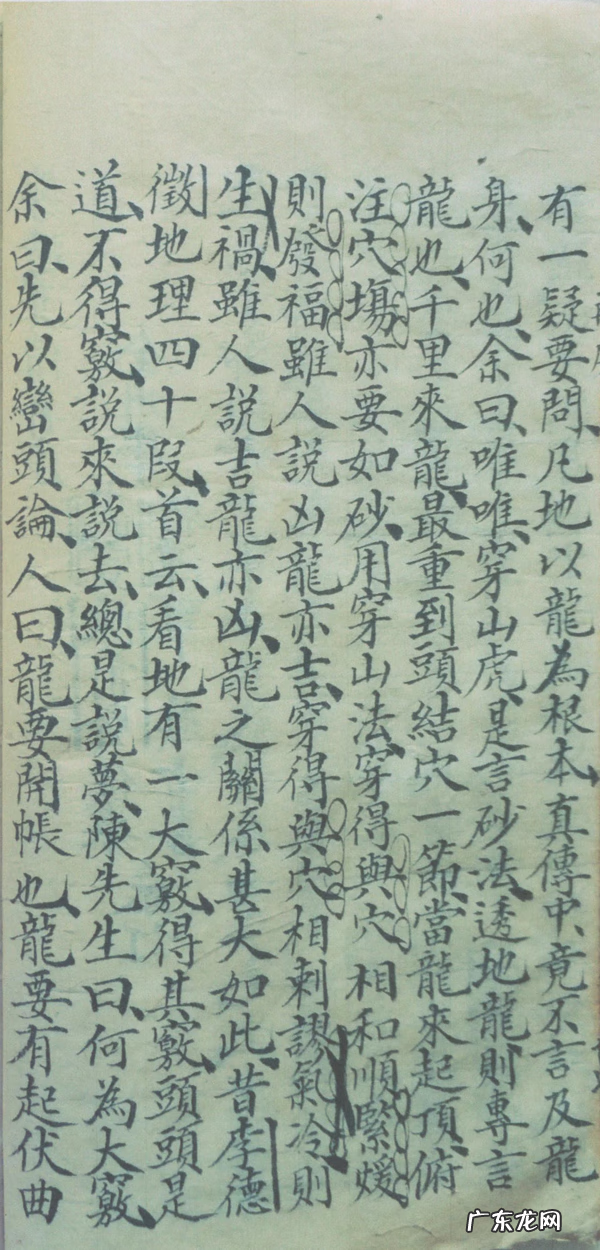 有一疑要問、凡地以龍為根本、真傳中、竟不言及龍
身、何也、余曰、唯唯、穿山虎、是言砂法、透地龍、則專言
龍也、千里來龍、最重到頭結穴一節、當龍來起頂、俯
注穴塲、亦要如砂、用穿山法、穿得與穴相和順緊煖、
則發福雖人說凶龍亦吉、穿得與穴相刺謬氣冷、則
生禍、雖人說吉龍亦凶、龍之關係甚大如此、昔李德
徵地理四十段、首云、看地有一大竅、得其竅、頭頭是
道、不得竅、說來說去、總是說夢、陳先生曰、何為大竅
余曰、先以巒頭論、人曰、龍要開帳也、龍要有起伏曲
广东龙网